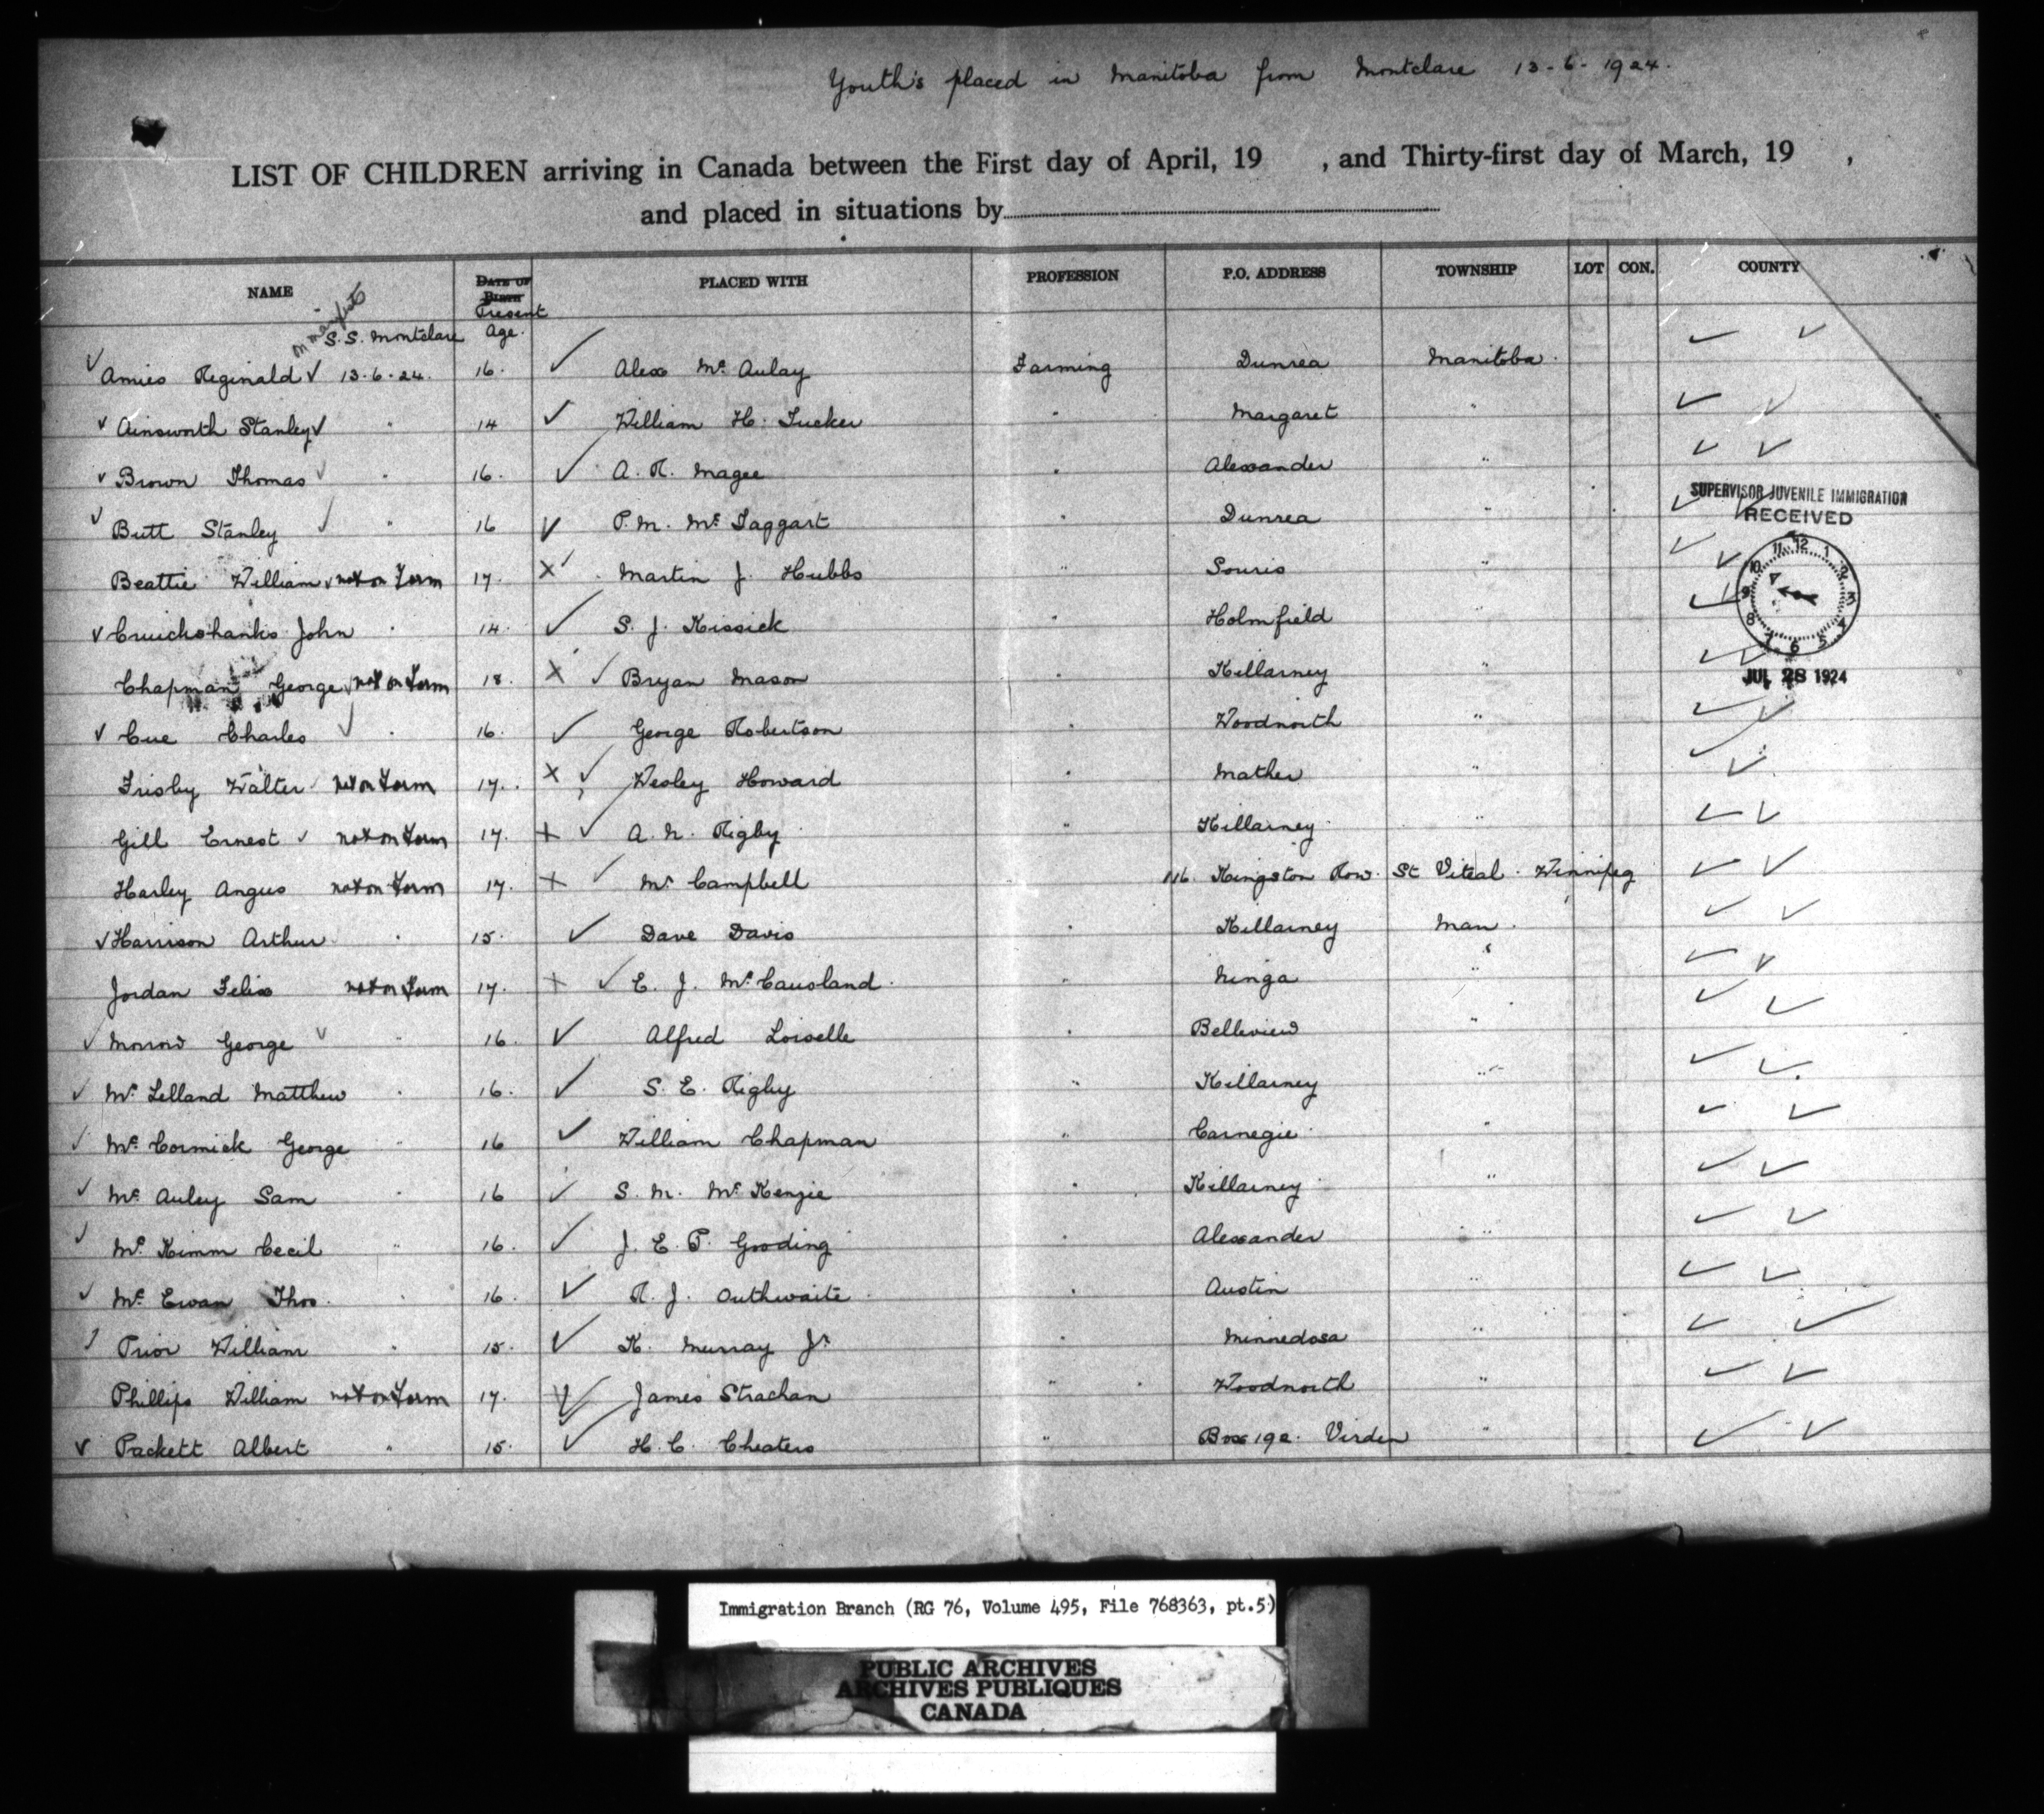 Youth's placed in Manitoba from Montclare 13-6-1924.
LIST OF CHILDREN arriving in Canada between the First day of April, 19 , and Thirty-first day of March, 19 ,
and placed in situations by
NAME DATE OF BIRTH Present Age. PLACED WITH PROFESSION P.O. ADDRESS TOWNSHIP LOT CON. COUNTY
on manifest S.S. Montclare
✓ Amies Reginald ✓ 13-6-24. 16. ✓ Alex Mc Aulay Farming Dunrea Manitoba. ✓ ✓
✓ Ainsworth Stanley ✓ " 14 ✓ William H. Tucker " Margaret " ✓ ✓
✓ Brown Thomas ✓ " 16. ✓ A. R. Magee " Alexander " ✓ ✓
✓ Butt Stanley ✓ " 16 ✓ P. M. Mc Taggart Dunrea " ✓ ✓
SUPERVISOR JUVENILE IMMIGRATION
RECEIVED
Beattie William ✓ not on Form 17. X ✓ Martin J. Hubbs " Souris " ✓ ✓
✓ Cruickshanks John " 14. ✓ S. J. Kissick " Holmfield ✓
Chapman George not on Form 18. X ✓ Bryan Mason " Killarney " ✓ ✓
JUL 28 1924
✓ Cue Charles ✓ " 16. ✓ George Robertson " Woodnorth " ✓ ✓
Frisby Walter not on Form 17. X ✓ Wesley Howard " Mather " ✓ ✓
Gill Ernest ✓ not on Form 17. X ✓ A. N. Rigby " Killarney " ✓ ✓
Harley Angus not on Form 17. X ✓ Mr Campbell 116. Kingston Row. St Vital. Winnipeg ✓ ✓
✓ Harrison Arthur " 15. ✓ Dave Davis " Killarney Man. ✓ ✓
Jordan Felix not on Form 17. X ✓ E. J. Mc Causland. " Ninga " ✓ ✓
✓ Morrow George ✓ " 16. ✓ Alfred Loiselle " Belleview " ✓ ✓
✓ Mc Lelland Matthew " 16. ✓ S. E. Rigby " Killarney " ✓ ✓
✓ Mc Cormick George " 16 ✓ William Chapman " Carnegie " ✓ ✓
✓ Mc Auley Sam " 16 ✓ S. M. Mc Kenzie " Killarney " ✓ ✓
✓ Mc Kimm Cecil " 16. ✓ J. E. P. Gooding " Alexander " ✓ ✓
✓ Mc Ewan Thos. " 16. ✓ R. J. Outhwaite " Austin " ✓ ✓
✓ Prior William " 15. ✓ K. Murray Jr " Minnedosa " ✓ ✓
Phillips William not on Form 17. X ✓ James Strachan " Woodnorth " ✓ ✓
✓ Packett Albert " 15. ✓ H. C. Cheaters " Box 192. Virden " ✓ ✓
Immigration Branch (RG 76, Volume 495, File 768363, pt.5)
PUBLIC ARCHIVES
ARCHIVES PUBLIQUES
CANADA